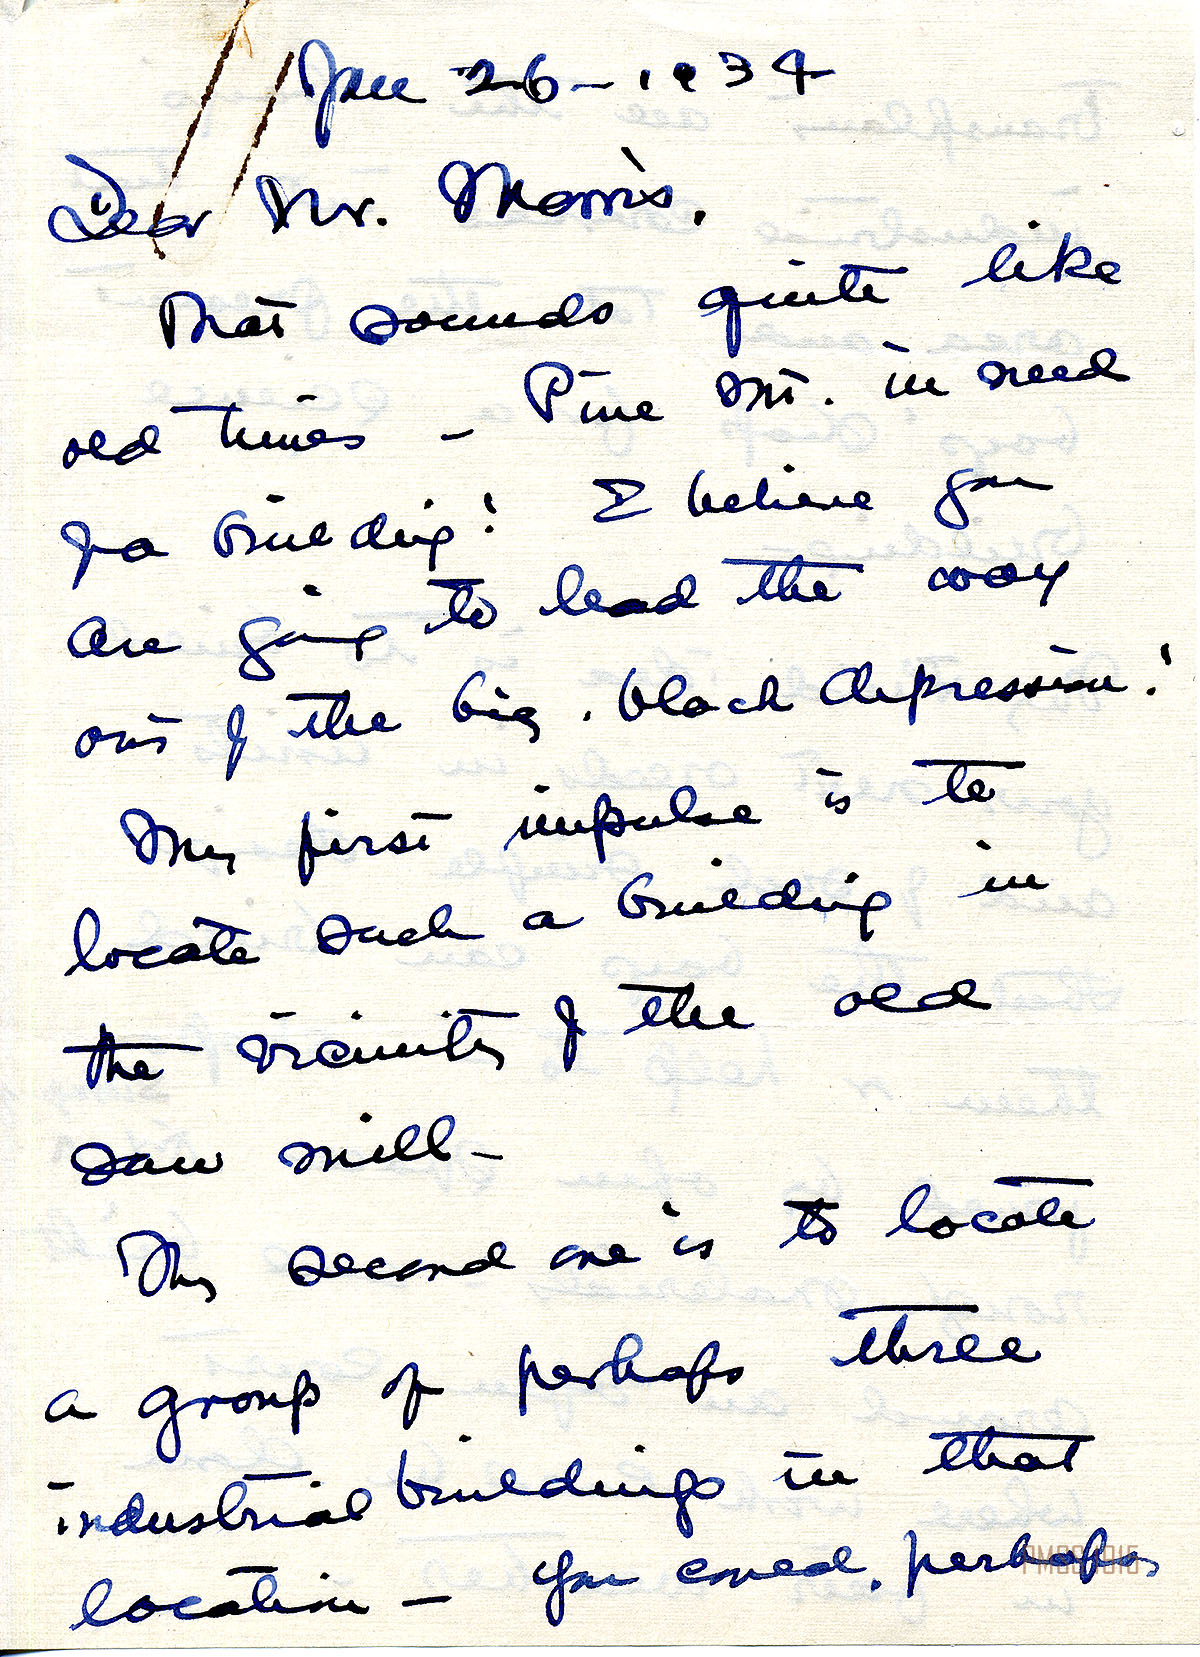 Jan 26-1934
Dear Mr. Morris,
That sounds quite like
old times - Pine Mt. in need
of a building! I believe you
are going to lead the way
out of the big, black depression!
My first impulse is to
locate such a building in
the vicinity of the old
saw mill -
My second one is to locate
a group of perhaps three
industrial buildings in that
location - You could, perhaps